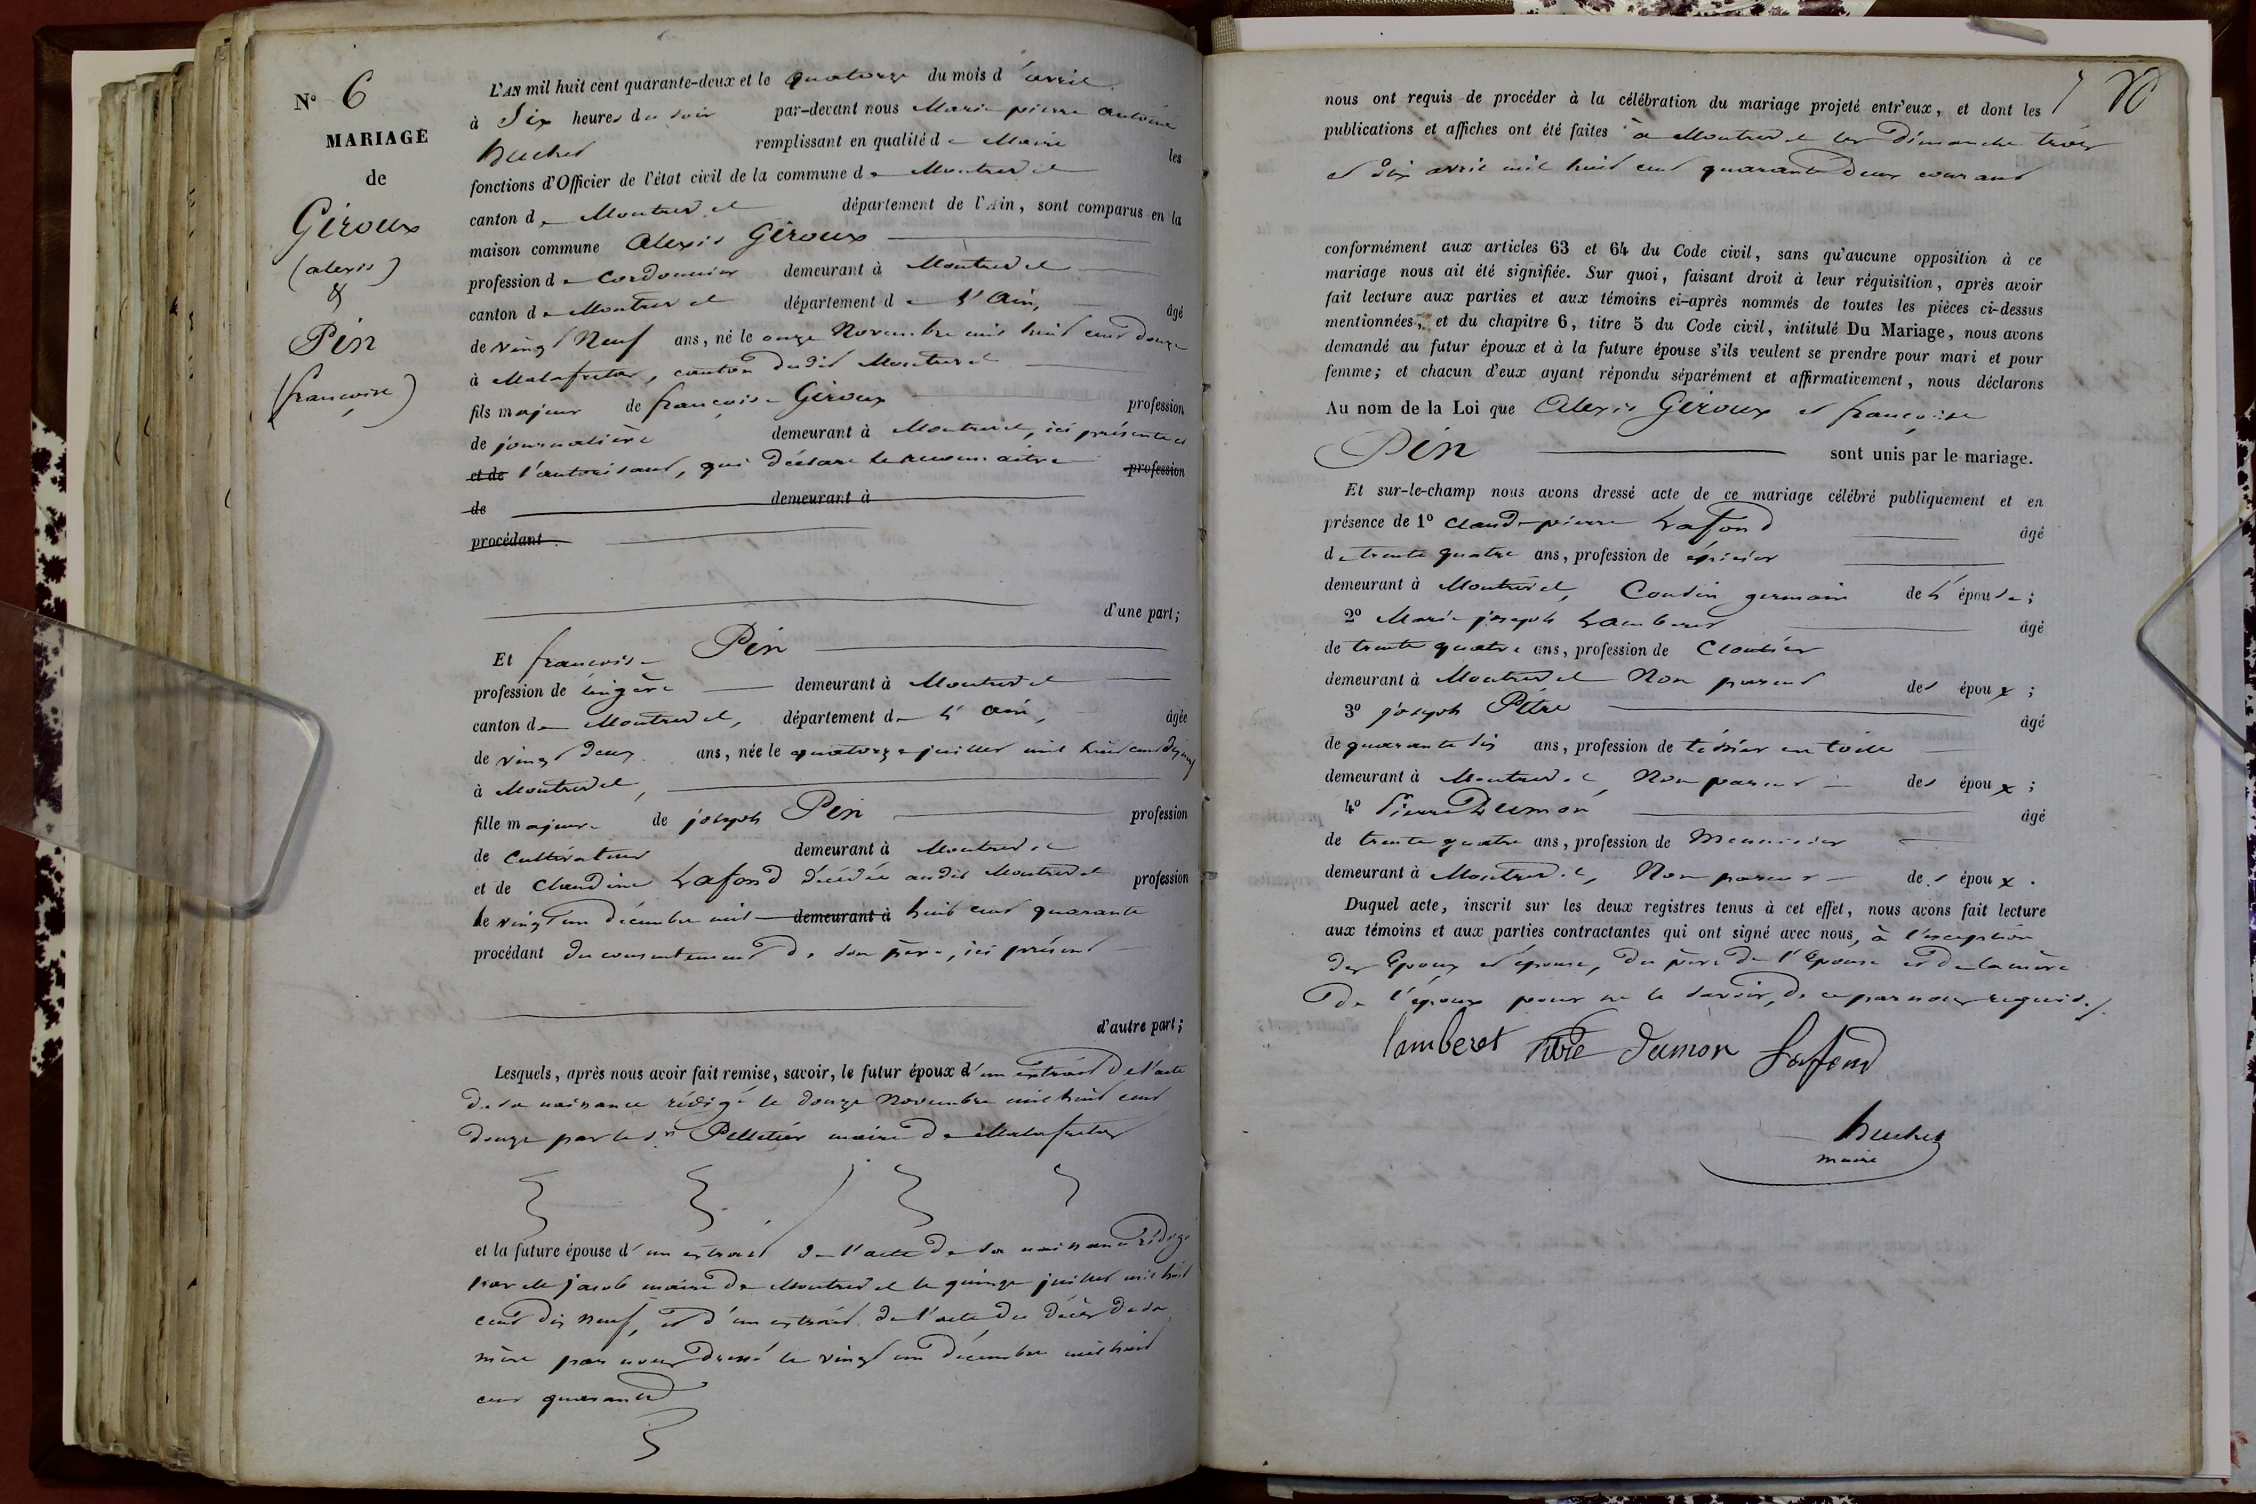 N° 6
MARIAGE
de
Giroux
(alexis)
&
Pin
(françoise)
L'AN mil huit cent quarante-deux et le quatorze du mois d'avril
à Six heures du soir par-devant nous Marie pierre antoine
huchet remplissant en qualité de Maire les
fonctions d'Officier de l'état civil de la commune de Montrevel
canton de Montrevel département de l'Ain, sont comparus en la
maison commune Alexis Giroux
profession de Cordonnier demeurant à Montrevel
canton de Montrevel département de L'Ain, âgé
de vingt Neuf ans, né le onze Novembre mil huit cent douze
à Malafretaz, canton dudit Montrevel
fils majeur de françoise Giroux profession
de journalière demeurant à Montrevel, ici présente et
et de l'autorisant, qui déclare le reconnaitre profession
de demeurant à
procédant
d'une part;
Et françoise Pin
profession de lingère demeurant à Montrevel
canton de Montrevel, département de L'Ain, âgée
de vingt deux ans, née le quatorze juillet mil huit cent dix neuf
à Montrevel,
fille majeure de joseph Pin profession
de Cultivateur demeurant à Montrevel
et de Claudine Lafond décédée audit Montrevel profession
le vingt un décembre mil demeurant à huit cent quarante
procédant du consentement de son père, ici présent
d'autre part;
Lesquels, après nous avoir fait remise, savoir, le futur époux d'un extrait de l'acte
de sa naissance rédigé le douze Novembre mil huit cent
douze par le Sr Pelletier maire de Malafretaz
et la future épouse d'un extrait de l'acte de sa naissance rédigé
par Mr jacob maire de Montrevel le quinze juillet mil huit
cent dix neuf, et d'un extrait de l'acte du décès de sa
mère par nous dressé le vingt un décembre mil huit
cent quarante
80
nous ont requis de procéder à la célébration du mariage projeté entr'eux, et dont les
publications et affiches ont été faites à Montrevel les dimanche trois
et dix avril mil huit cent quarante deux courant
conformément aux articles 63 et 64 du Code civil, sans qu'aucune opposition à ce
mariage nous ait été signifiée. Sur quoi, faisant droit à leur réquisition, après avoir
fait lecture aux parties et aux témoins ci-après nommés de toutes les pièces ci-dessus
mentionnées, et du chapitre 6, titre 5 du Code civil, intitulé Du Mariage, nous avons
demandé au futur époux et à la future épouse s'ils veulent se prendre pour mari et pour
femme; et chacun d'eux ayant répondu séparément et affirmativement, nous déclarons
Au nom de la Loi que Alexis Giroux et françoise
Pin sont unis par le mariage.
Et sur-le-champ nous avons dressé acte de ce mariage célébré publiquement et en
présence de 1° Claude pierre Lafond âgé
de trente quatre ans, profession de épicier
demeurant à Montrevel, Cousin germain de L'épouse;
2° Marie joseph Lamberet âgé
de trente quatre ans, profession de Cloutier
demeurant à Montrevel Non parent des époux;
3° joseph Pitre âgé
de quarante six ans, profession de tissier en toile
demeurant à Montrevel, Non parent des époux;
4° Pierre Dumon âgé
de trente quatre ans, profession de Menuisier
demeurant à Montrevel, Non parent des époux.
Duquel acte, inscrit sur les deux registres tenus à cet effet, nous avons fait lecture
aux témoins et aux parties contractantes qui ont signé avec nous, à l'exception
des Epoux et épouse, du père de l'Epouse et de la mère
de l'époux pour ne le savoir, de ce par nous requis.
lamberet Pitre dumon Lafond
huchet
maire